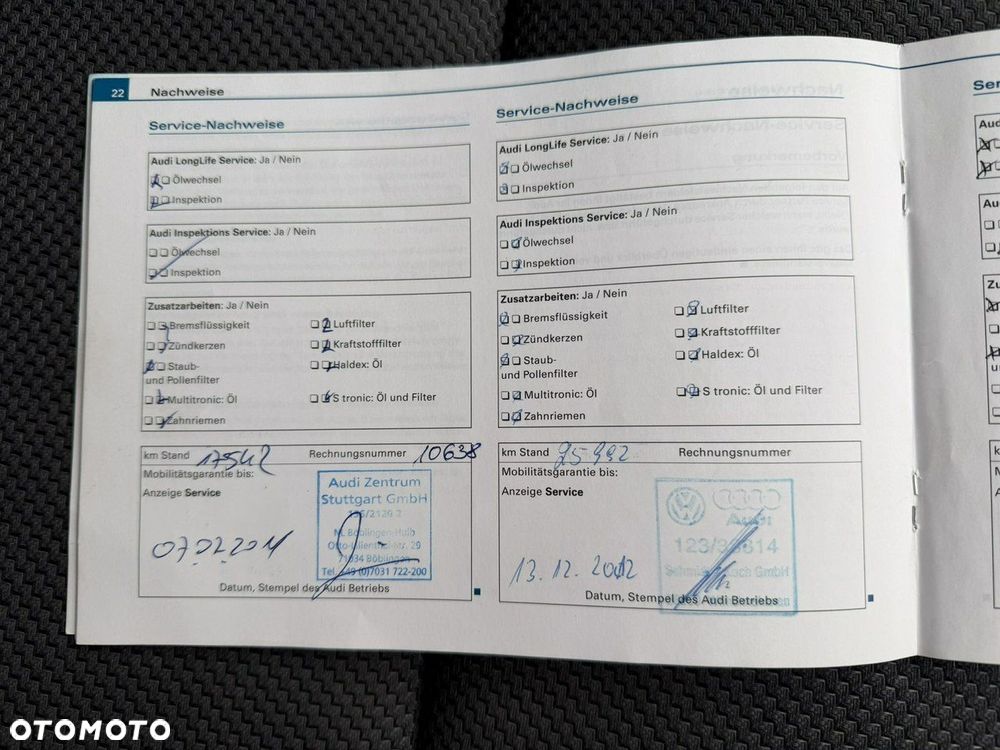 22 Nachweise
Service-Nachweise
Audi LongLife Service: Ja / Nein
Ölwechsel
Inspektion
Audi Inspektions Service: Ja / Nein
Ölwechsel
Inspektion
Zusatzarbeiten: Ja / Nein
Bremsflüssigkeit Luftfilter
Zündkerzen Kraftstofffilter
Staub- Haldex: Öl
und Pollenfilter
Multitronic: Öl S tronic: Öl und Filter
Zahnriemen
km Stand 17542 Rechnungsnummer 10638
Mobilitätsgarantie bis:
Anzeige Service
Audi Zentrum
Stuttgart GmbH
71034 Böblingen
Tel. +49 (0)7031 722-200
07.02.2011
Datum, Stempel des Audi Betriebs
Service-Nachweise
Audi LongLife Service: Ja / Nein
Ölwechsel
Inspektion
Audi Inspektions Service: Ja / Nein
Ölwechsel
Inspektion
Zusatzarbeiten: Ja / Nein
Bremsflüssigkeit Luftfilter
Zündkerzen Kraftstofffilter
Staub- Haldex: Öl
und Pollenfilter
Multitronic: Öl S tronic: Öl und Filter
Zahnriemen
km Stand Rechnungsnummer
Mobilitätsgarantie bis:
Anzeige Service
Audi
GmbH
13.12.2012
Datum, Stempel des Audi Betriebs
OTOMOTO